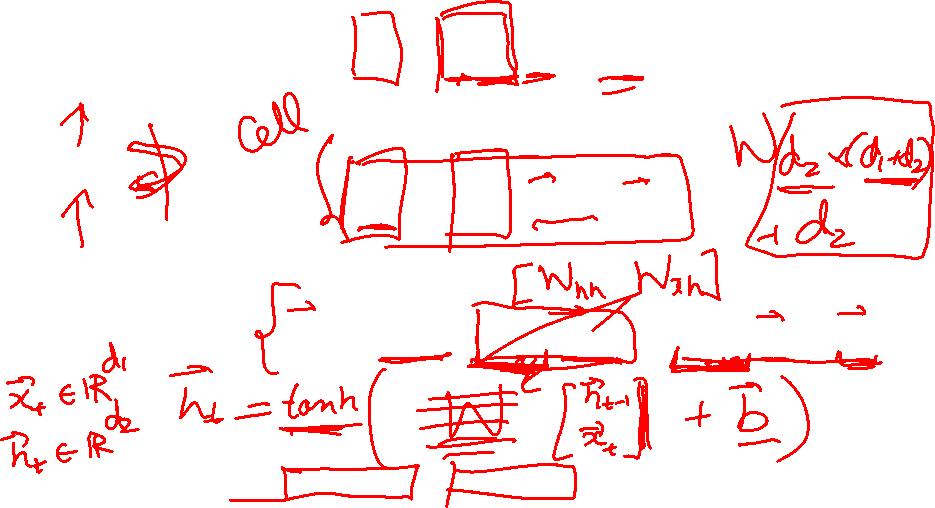 Cell
W d₂ × (d₁+d₂)
+ d₂
[Whh Wxh]
x⃗ₜ ∈ ℝ^d₁
h⃗ₜ ∈ ℝ^d₂
h⃗ₜ = tanh( W [h⃗ₜ₋₁ x⃗ₜ] + b⃗ )